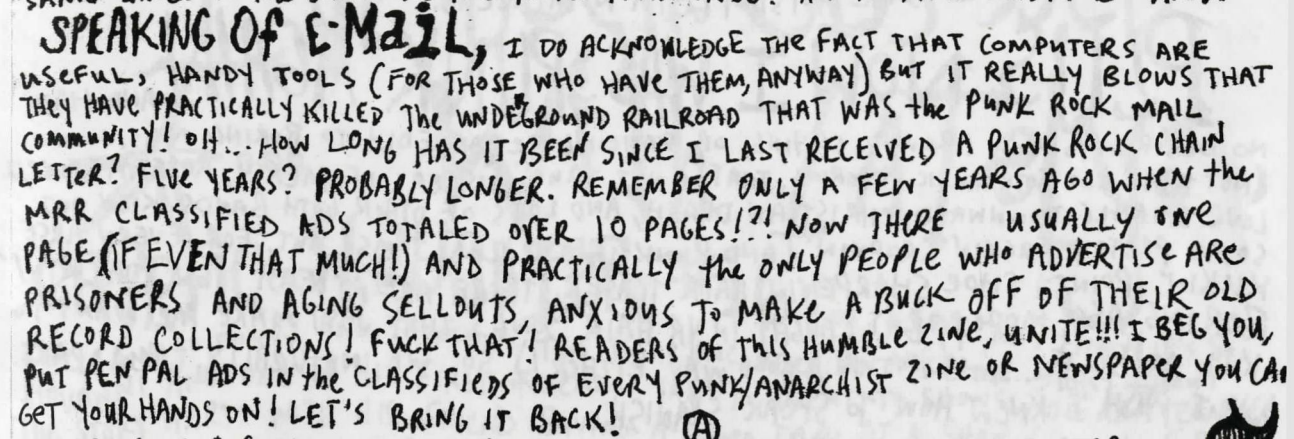 SPEAKING Of E-MaiL, I DO ACKNOWLEDGE THE FACT THAT COMPUTERS ARE
USEFUL, HANDY TOOLS (FOR THOSE WHO HAVE THEM, ANYWAY) BUT IT REALLY BLOWS THAT
THEY HAVE PRACTICALLY KILLED THE UNDERGROUND RAILROAD THAT WAS the PUNK ROCK MAIL
COMMUNITY! OH... HOW LONG HAS IT BEEN SINCE I LAST RECEIVED A PUNK ROCK CHAIN
LETTER? FIVE YEARS? PROBABLY LONGER. REMEMBER ONLY A FEW YEARS AGO WHEN the
MRR CLASSIFIED ADS TOTALED OVER 10 PAGES!?! NOW THERE USUALLY ONE
PAGE (IF EVEN THAT MUCH!) AND PRACTICALLY the ONLY PEOPLE WHO ADVERTISE ARE
PRISONERS AND AGING SELLOUTS, ANXIOUS TO MAKE A BUCK OFF OF THEIR OLD
RECORD COLLECTIONS! FUCK THAT! READERS OF THIS HUMBLE ZINE, UNITE!!! I BEG YOU,
PUT PEN PAL ADS IN the CLASSIFIEDS OF EVERY PUNK/ANARCHIST ZINE OR NEWSPAPER YOU CAN
GET YOUR HANDS ON! LET'S BRING IT BACK! Ⓐ